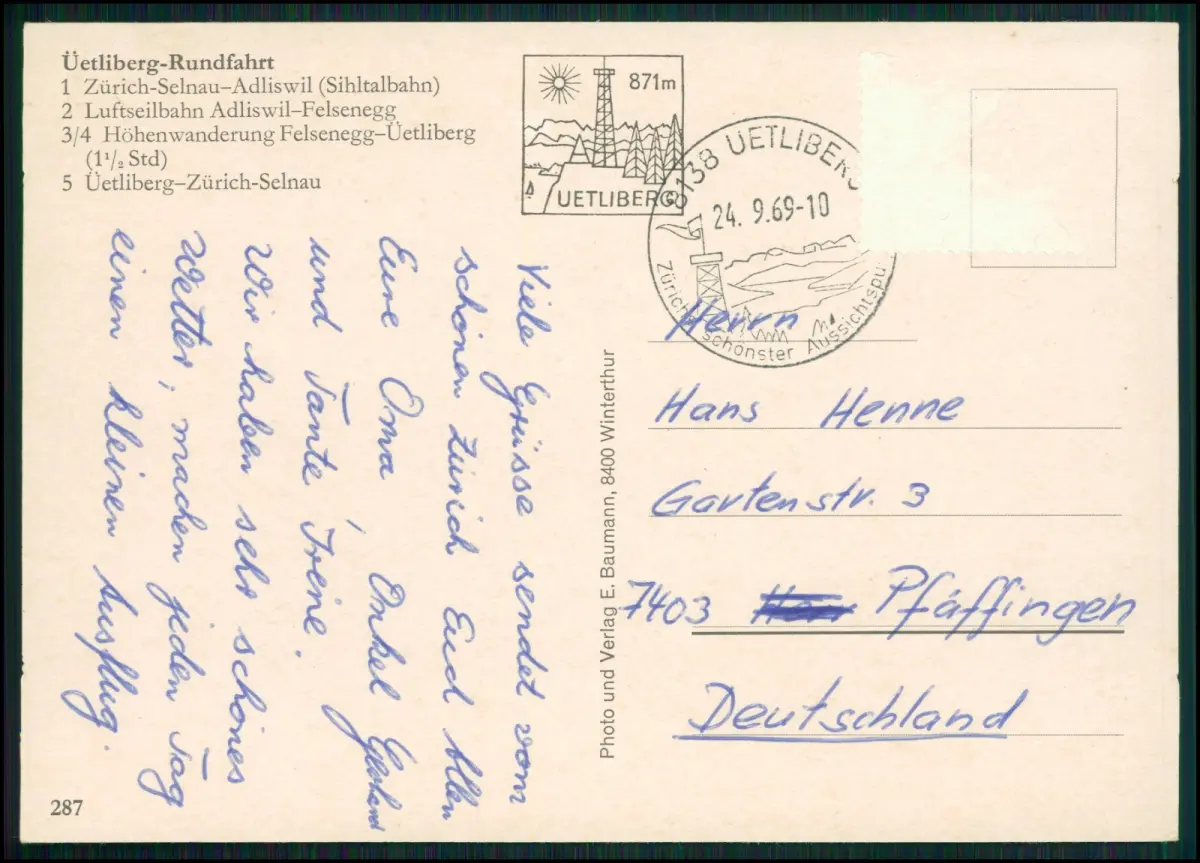 Üetliberg-Rundfahrt
1 Zürich-Selnau–Adliswil (Sihltalbahn)
2 Luftseilbahn Adliswil–Felsenegg
3/4 Höhenwanderung Felsenegg–Üetliberg
(1½ Std)
5 Üetliberg–Zürich-Selnau
871m
UETLIBERG
8138 UETLIBERG
24. 9.69-10
Zürichs schönster Aussichtspu
Viele Grüsse sendet vom
schönen Zürich Euch allen
Eure Oma, Onkel Gerhard
und Tante Irene.
Wir haben sehr schönes
Wetter, machen jeden Tag
einen kleinen Ausflug.
Photo und Verlag E. Baumann, 8400 Winterthur
Herrn
Hans Henne
Gartenstr. 3
7403 Pfäffingen
Deutschland
287